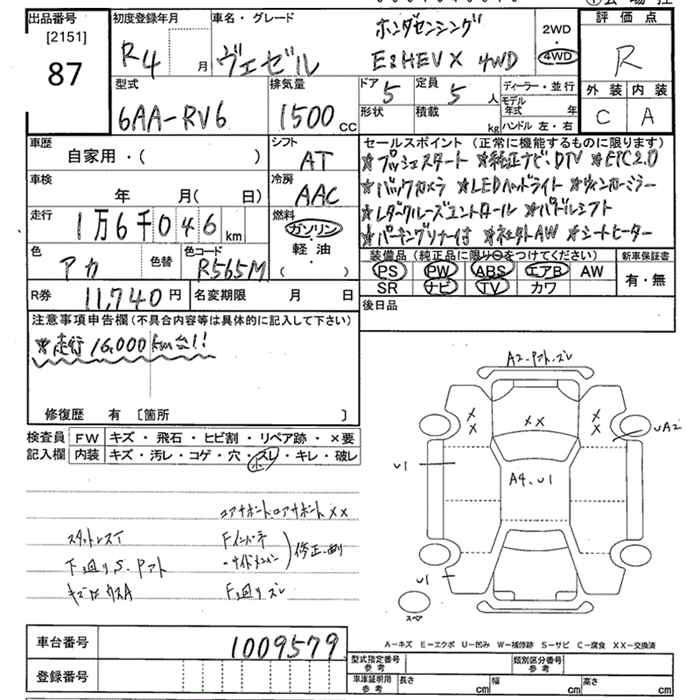 出品番号
[2151]
87
初度登録年月
R4 月
車名・グレード
ヴェゼル
ホンダセンシング
E:HEV X 4WD
2WD
4WD
評価点
R
外装 内装
C A
型式
6AA-RV6
排気量
1500 CC
ドア 5
定員 5 人
形状
積載 kg
ディーラー・並行
モデル年式 年
ハンドル 左・右
車歴
自家用・( )
車検
年 月( 日)
走行
1万6千046 km
色
アカ
色替
色コード
R565M
R券 11,740 円
名変期限 月 日
シフト
AT
冷房
AAC
燃料
ガソリン
軽油
( )
セールスポイント(正常に機能するものに限ります)
★プッシュスタート ★純正ナビDTV ★ETC2.0
★バックカメラ ★LEDヘッドライト ★ウィンカーミラー
★レーダークルーズコントロール ★パドルシフト
★パーキングソナー付 ★純正AW ★シートヒーター
装備品(純正品に限り○をつけてください)
PS PW ABS エアB AW
SR ナビ TV カワ
新車保証書
有・無
後日品
注意事項申告欄(不具合内容等は具体的に記入して下さい)
★走行16,000km台!!
修復歴 有 [箇所 ]
検査員記入欄
FW キズ・飛石・ヒビ割・リペア跡・×要
内装 キズ・汚レ・コゲ・穴・スレ・キレ・破レ
コアサポート、ロアサポートXX
スタッドレスT
下廻りS.
Fインパネ
修正
F下廻りズレ
A2
XX
UA2
U1
A4.U1
U1
スペア
A-キズ E-エクボ U-凹み W-補修跡 S-サビ C-腐食 XX-交換済
車台番号 1009579
登録番号
型式指定番号 参考
類別区分番号 参考
車庫証明用 参考 長さ cm 幅 cm 高さ cm